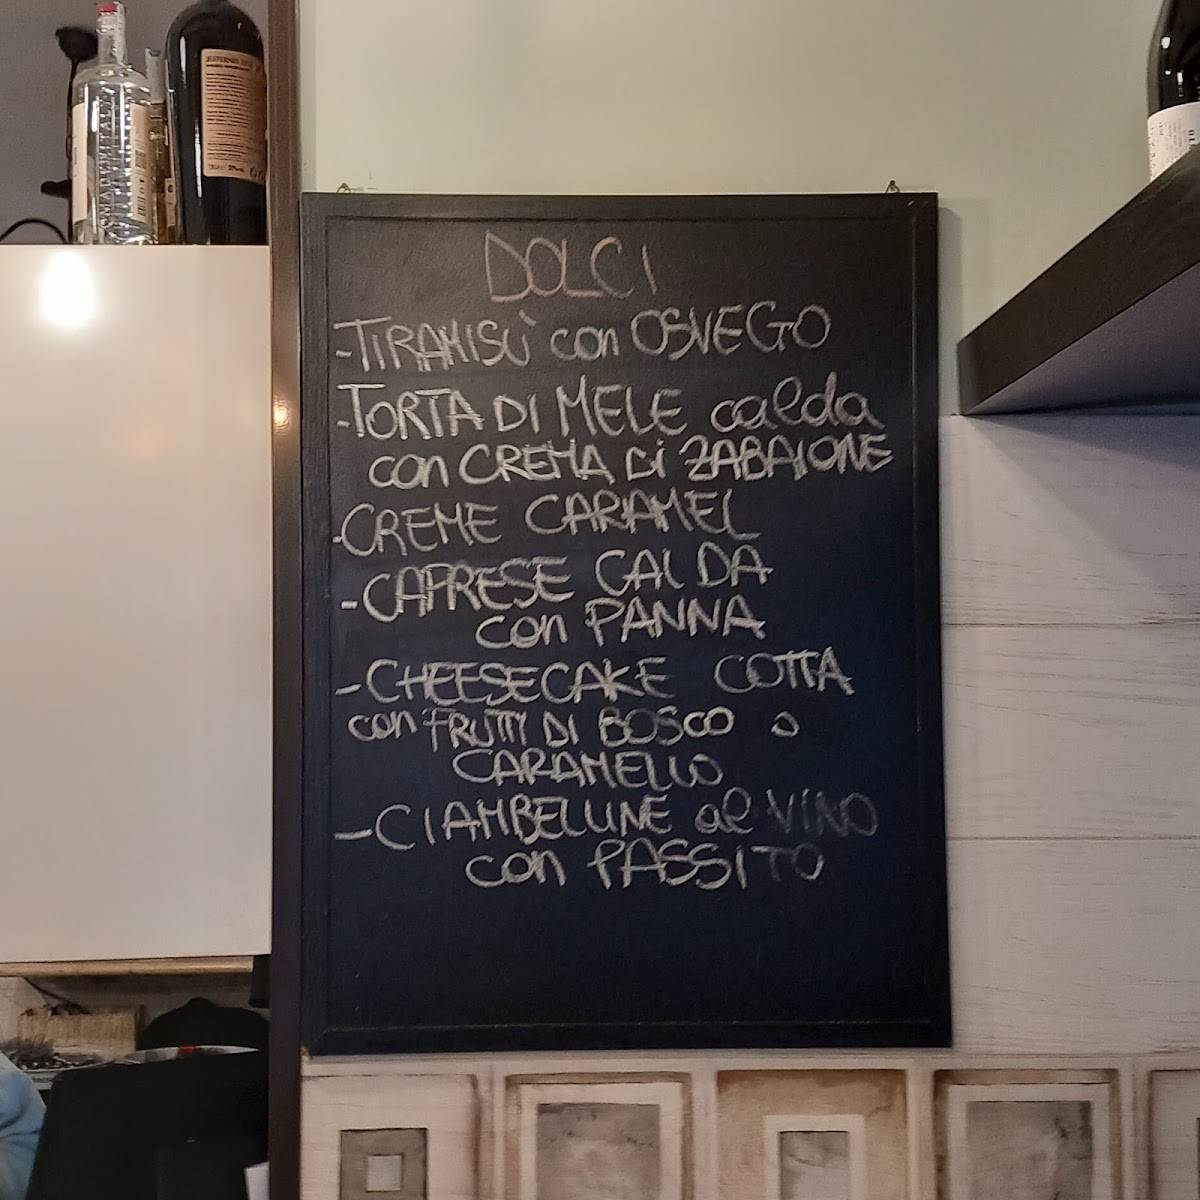 DOLCI
-TIRAMISÙ con OSVEGO
-TORTA DI MELE calda
con CREMA di ZABAIONE
-CREME CARAMEL
-CAPRESE CALDA
con PANNA
-CHEESECAKE COTTA
con FRUTTI DI BOSCO o
CARAMELLO
-CIAMBELLINE al VINO
con PASSITO